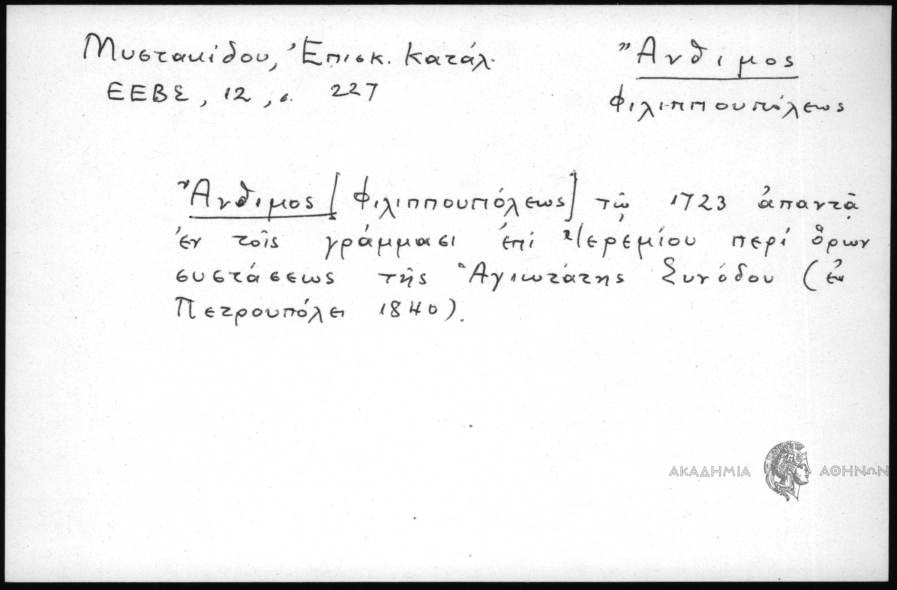 Μυστακίδου, Ἐπισκ. Κατάλ.
ΕΕΒΣ, 12, σ. 227
Ἄνθιμος
Φιλιππουπόλεως
Ἄνθιμος [Φιλιππουπόλεως] τῷ 1723 ἀπαντᾷ
ἐν τοῖς γράμμασι ἐπί Ἱερεμίου περί ὅρων
συστάσεως τῆς Ἁγιωτάτης Συνόδου (ἐν
Πετρουπόλει 1840).
ΑΚΑΔΗΜΙΑ ΑΘΗΝΩΝ